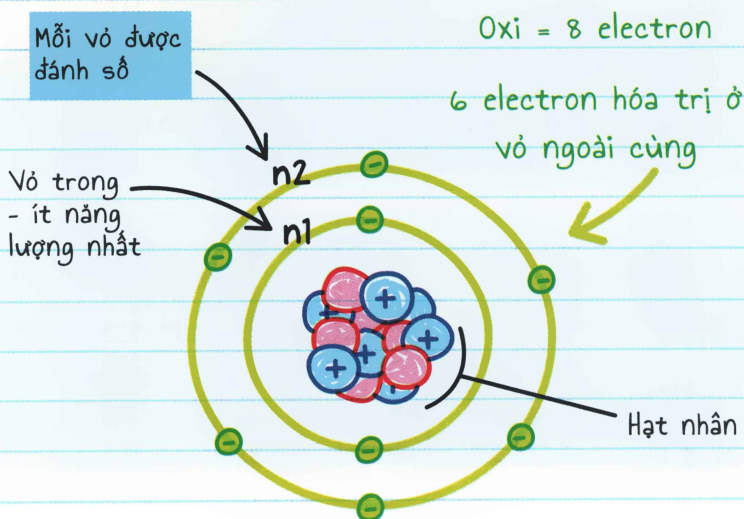 Mỗi vỏ được
đánh số
Oxi = 8 electron
6 electron hóa trị ở
vỏ ngoài cùng
n2
Vỏ trong
- ít năng
lượng nhất
n1
Hạt nhân